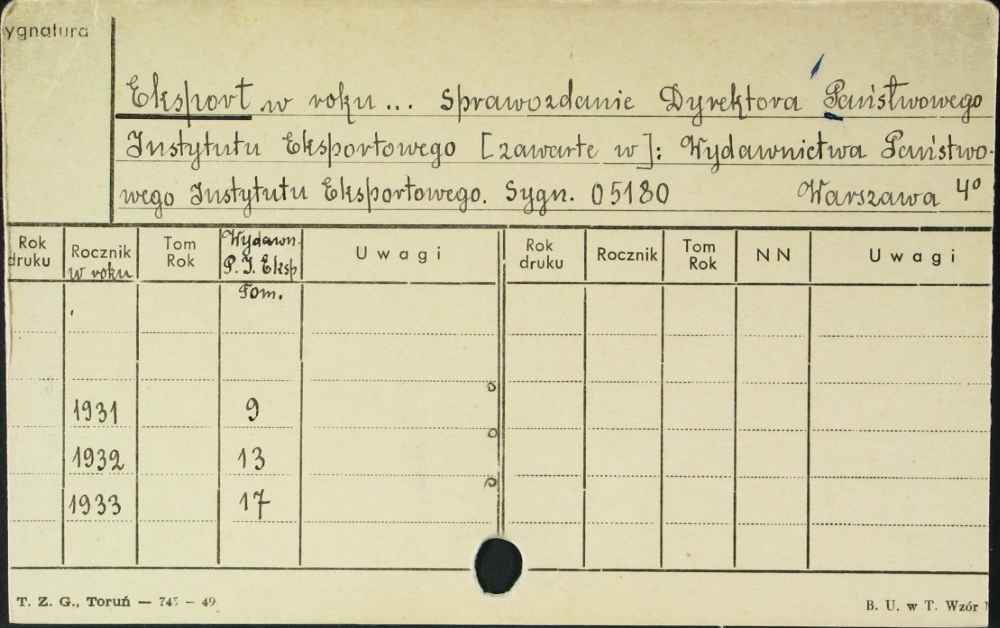 ygnatura
Eksport w roku ... Sprawozdanie Dyrektora Państwowego
Instytutu Eksportowego [zawarte w]: Wydawnictwa Państwo-
wego Instytutu Eksportowego. Sygn. 05180 Warszawa 4°
Rok druku Rocznik w roku Tom Rok Wydawn. P. I. Eksp. Tom. Uwagi Rok druku Rocznik Tom Rok NN Uwagi
1931 9
1932 13
1933 17
T. Z. G., Toruń — 745 — 49
B. U. w T. Wzór